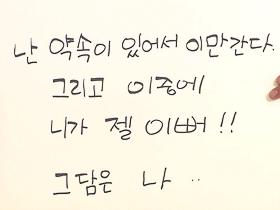 난 약속이 있어서 이만간다.
그리고 이중에
니가 젤 이뻐!!
그담은 나 ..